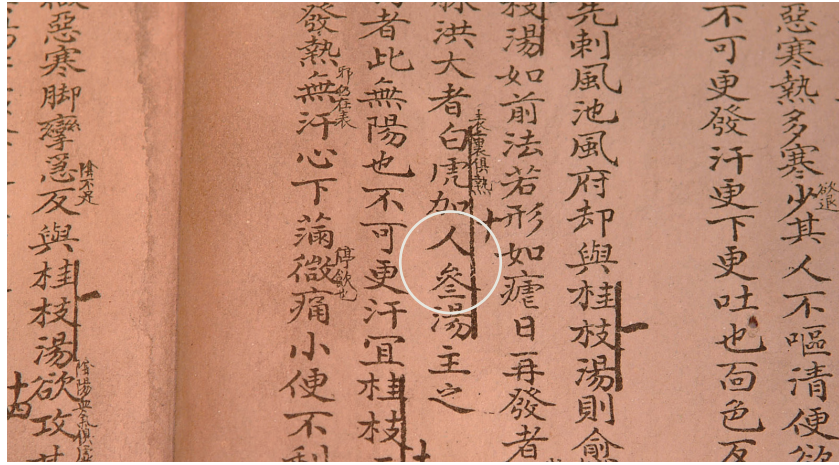 惡寒熱多寒少其人不嘔清便欲
欲退
不可更發汗更下更吐也面色反
先刺風池風府却與桂枝湯則愈
枝湯如前法若形如瘧日再發者
十
脉洪大者白虎加人參湯主之
表裏俱熱
者此無陽也不可更汗宜桂枝
發熱無汗心下滿微痛小便不利
邪仍在表
停飲也
惡寒脚攣急反與桂枝湯欲攻其
陰不足
十四